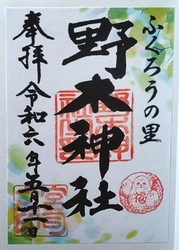 ふくろうの里
野木神社
奉拝
令和六年五月十一日
福